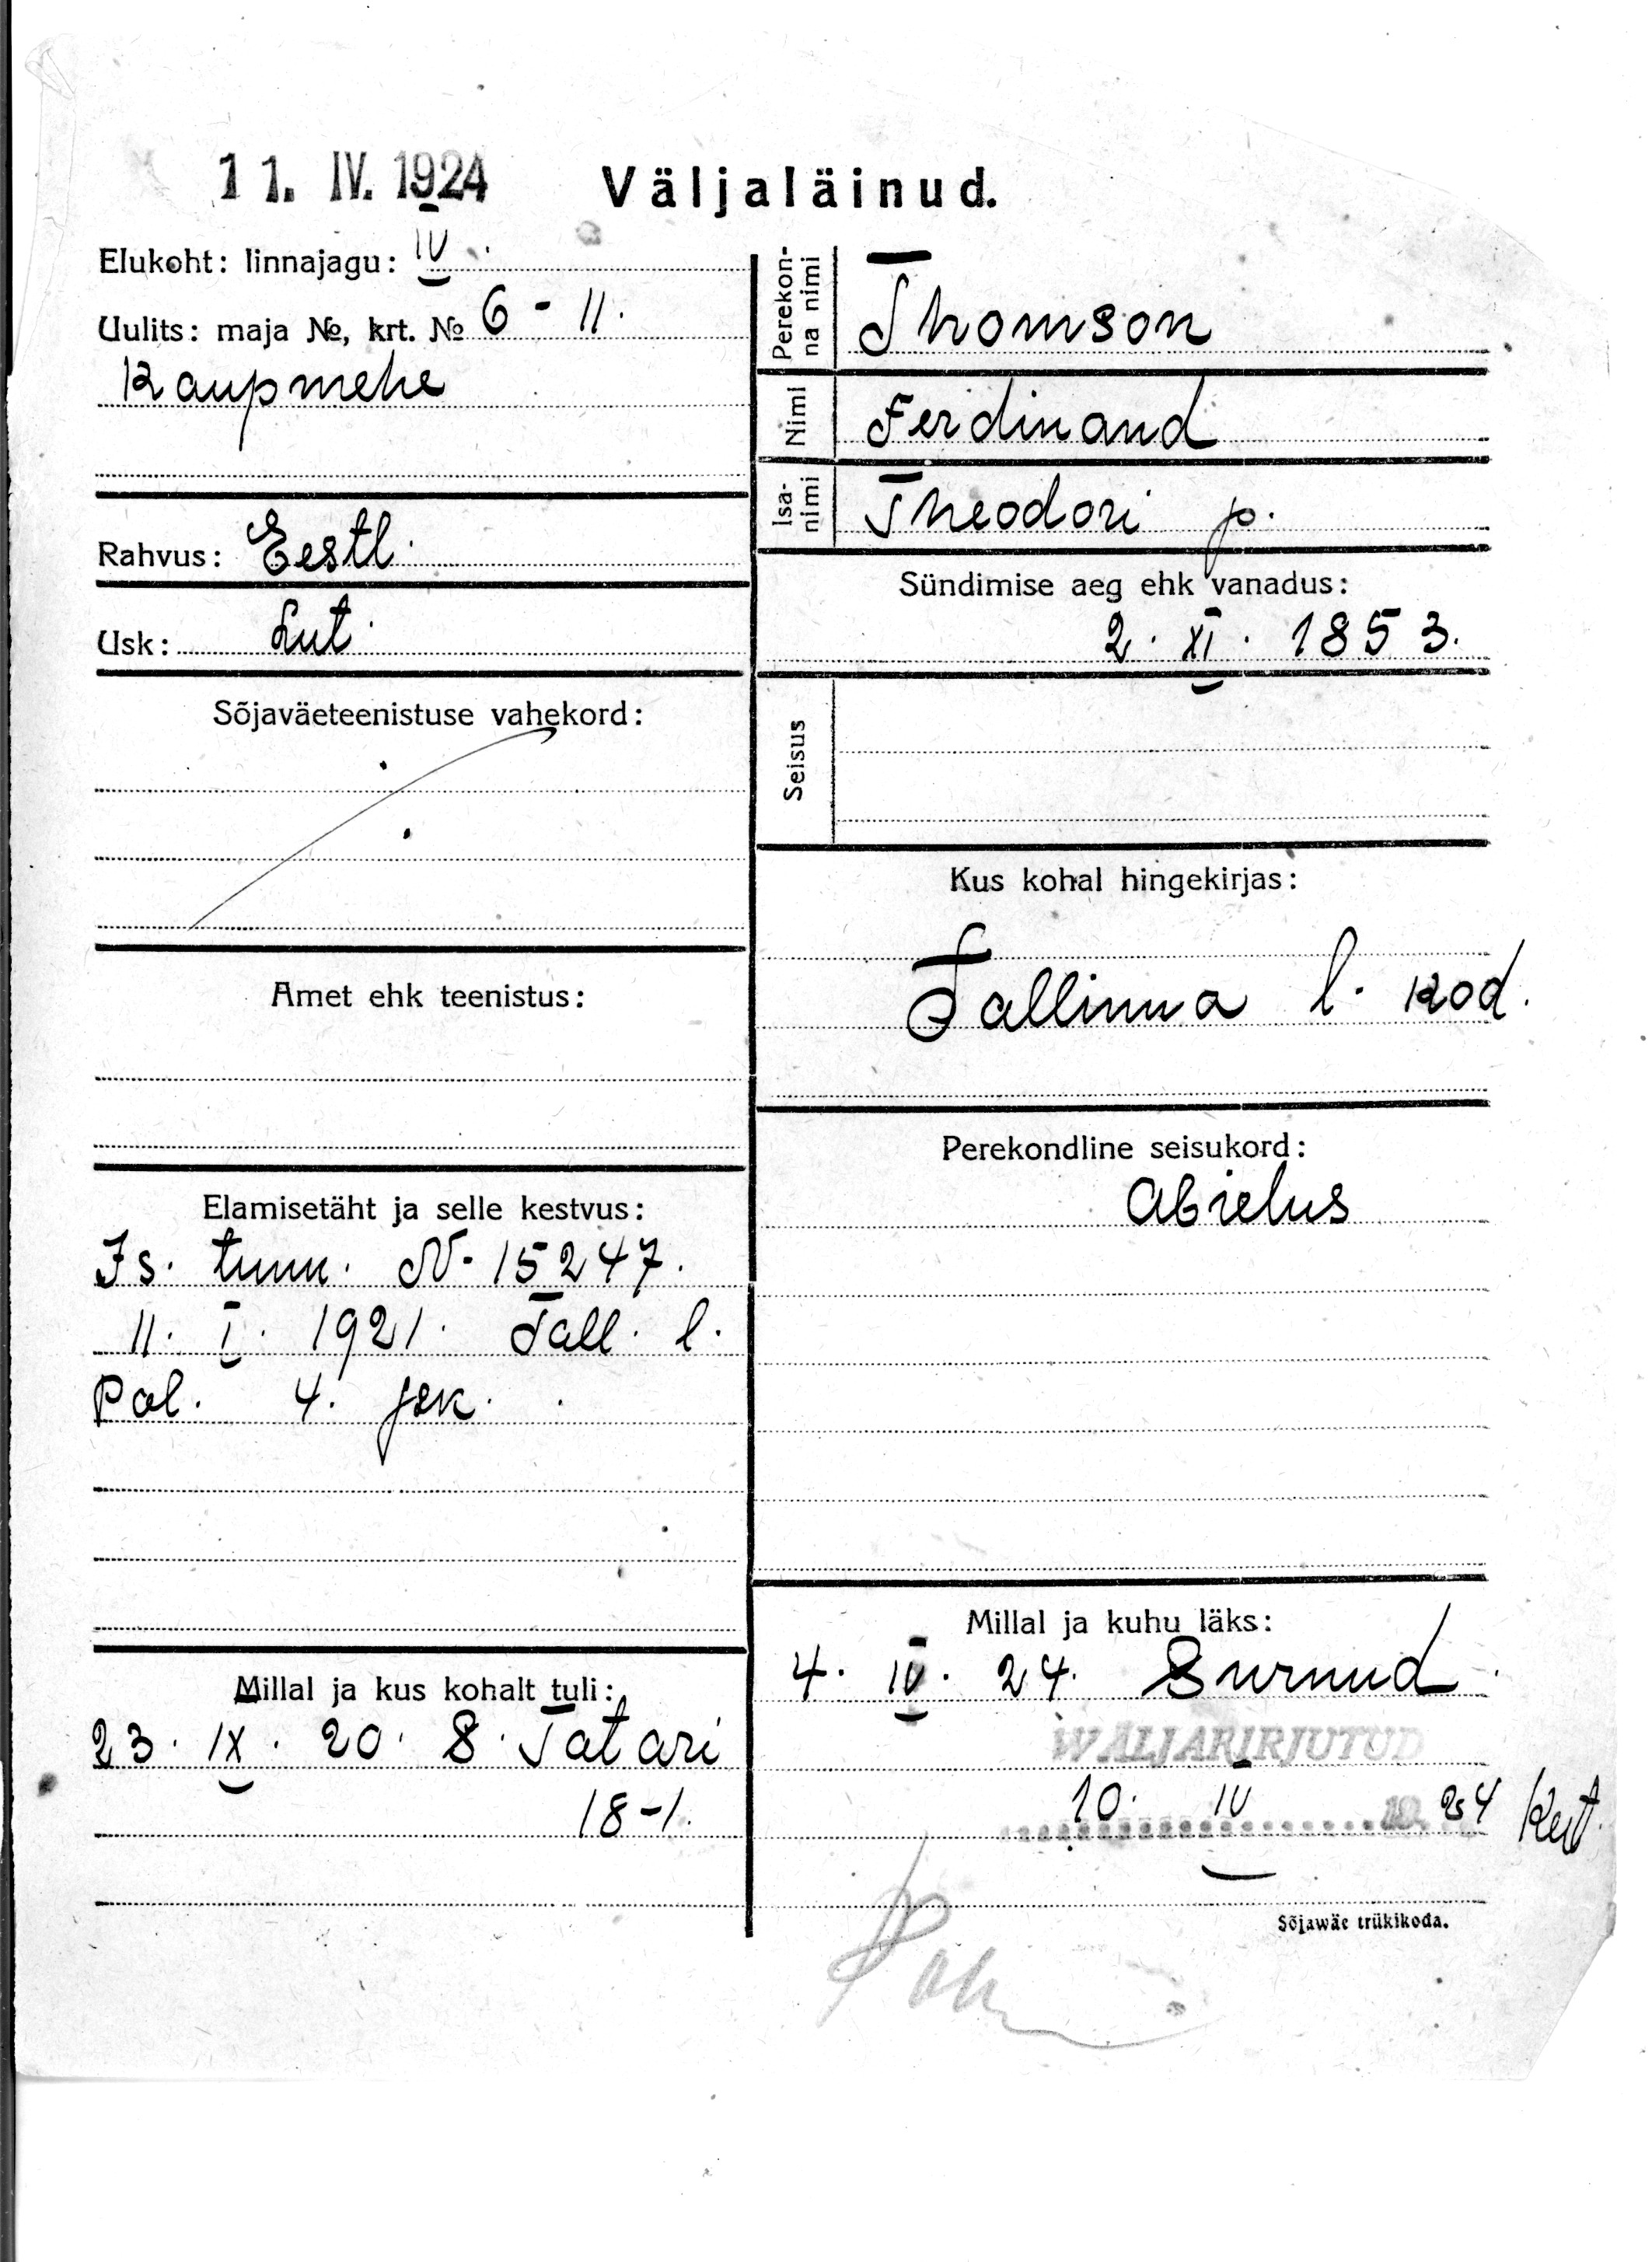 11. IV. 1924
Väljaläinud.
Elukoht: linnajagu: IV.
Uulits: maja №, krt. № 6 - 11.
Kaupmehe
Rahvus: Eestl.
Usk: Lut.
Sõjaväeteenistuse vahekord:
Amet ehk teenistus:
Elamisetäht ja selle kestvus:
Is. tunn. N- 15247.
11. I. 1921. Tall. l.
Pol. 4. jsk.
Millal ja kus kohalt tuli:
23. IX. 20. S. Tatari
18-1.
Perekon-
na nimi
Thomson
Nimi
Ferdinand
Isa-
nimi
Theodori p.
Sündimise aeg ehk vanadus:
2. XI. 1853.
Seisus
Kus kohal hingekirjas:
Tallinna l. kod.
Perekondline seisukord:
Abielus
Millal ja kuhu läks:
4. IV. 24. Surnud
WÄLJAKIRJUTUD
10. IV 19 24
Sõjawäe trükikoda.